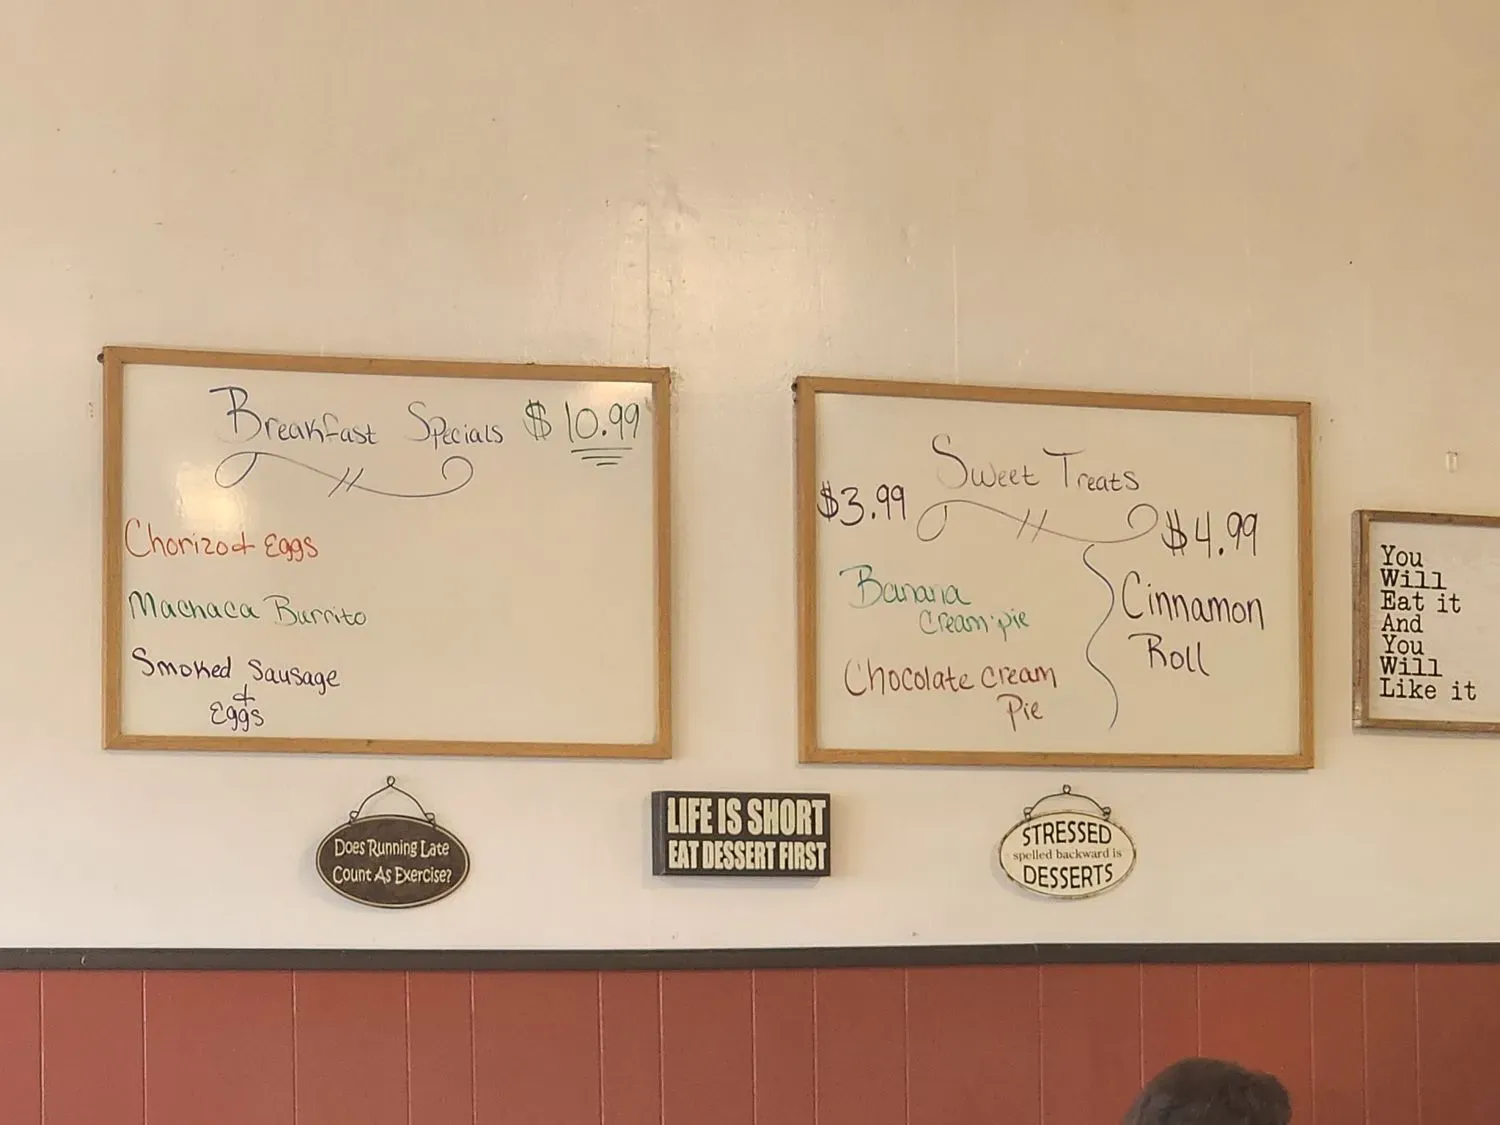 Breakfast Specials $10.99
Chorizo & Eggs
Machaca Burrito
Smoked Sausage
&
Eggs
Sweet Treats
$3.99
$4.99
Banana
Cream pie
Chocolate cream
Pie
Cinnamon
Roll
You
Will
Eat it
And
You
Will
Like it
Does Running Late
Count As Exercise?
LIFE IS SHORT
EAT DESSERT FIRST
STRESSED
spelled backward is
DESSERTS